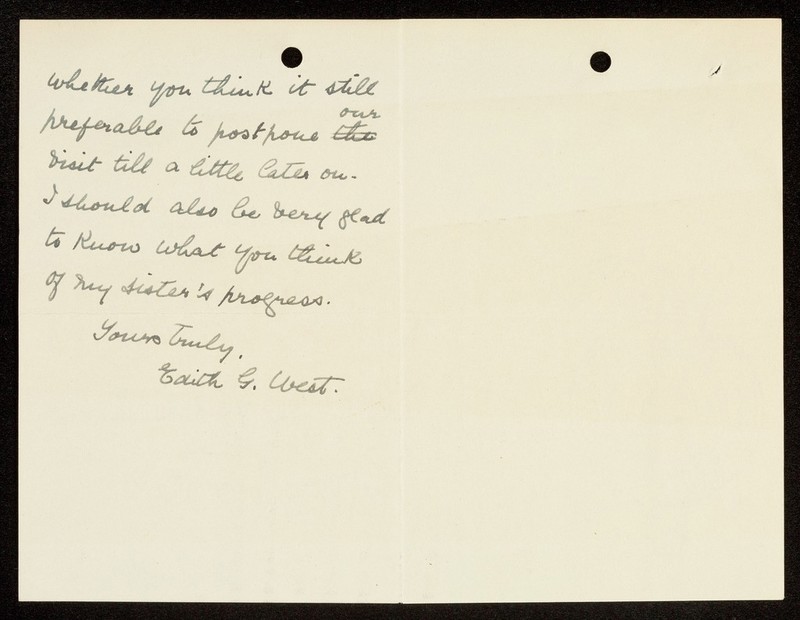 whether you think it still
preferable to postpone the our
visit till a little later on.
I should also be very glad
to know what you think
of my sister's progress.
Yours truly,
Edith G. West.